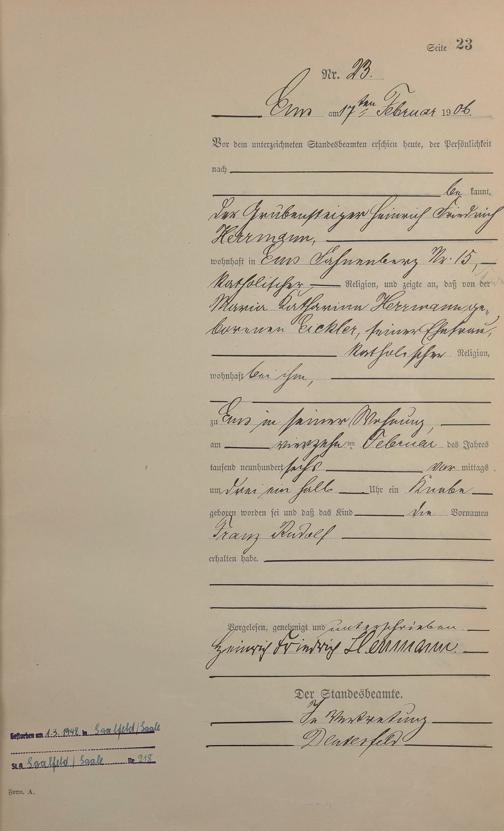 Seite 23
Nr. 23.
Ems am 17ten Februar 1906.
Vor dem unterzeichneten Standesbeamten erschien heute, der Persönlichkeit
nach
be kannt,
der Grubensteiger Heinrich Friedrich
Herrmann,
wohnhaft in Ems Nr. 15,
katholischer Religion, und zeigte an, daß von der
Maria Katharina Herrmann ge-
borenen Eickler, seiner Ehefrau,
katholischer Religion,
wohnhaft bei ihm,
zu Ems in seiner Wohnung,
am vierzehnten Februar des Jahres
tausend neunhundert sechs vor mittags
um drei ein halb Uhr ein Knabe
geboren worden sei und daß das Kind die Vornamen
Franz Rudolf
erhalten habe.
Vorgelesen, genehmigt und unterschrieben
Heinrich Friedrich Herrmann.
Der Standesbeamte.
In Vertretung
Gestorben am 1.3.1948 in Saalfeld/Saale
St.A. Saalfeld/Saale Nr 218
Form. A.